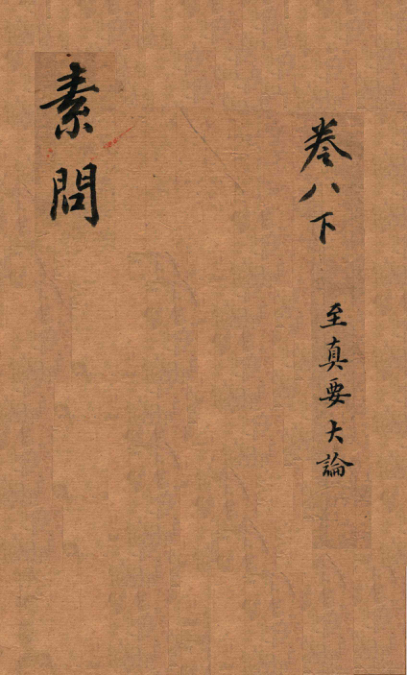 卷八下 至真要大論
素問